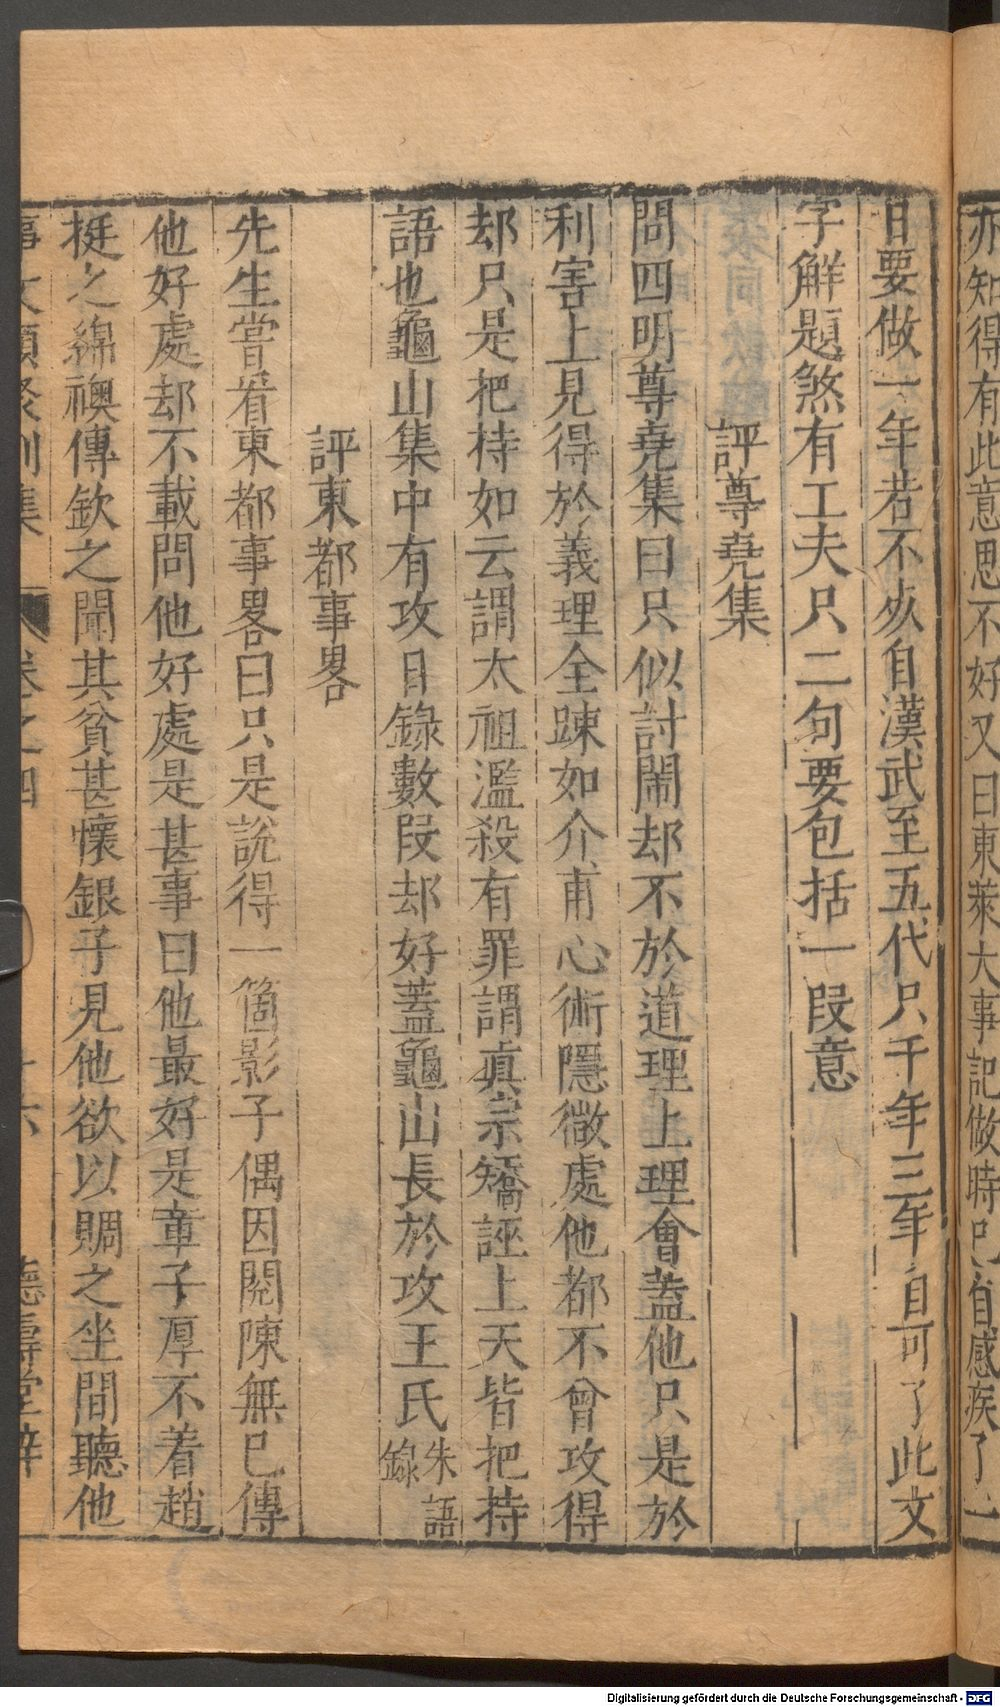 亦知得有此意思不好又曰東萊大事記做時已自感疾了一
日要做一年若不死自漢武至五代只千年三年自可了此文
字解題煞有工夫只二句要包括一段意
評尊堯集
問四明尊堯集曰只似討閙却不於道理上理會蓋他只是於
利害上見得於義理全踈如介甫心術隱微處他都不曾攻得
却只是把持如云謂太祖濫殺有罪謂真宗矯誣上天皆把持
語也龜山集中有攻日録數段却好蓋龜山長於攻王氏朱語録
評東都事畧
先生嘗看東都事畧曰只是說得一箇影子偶因閱陳無已傳
他好處却不載問他好處是甚事曰他最好是章子厚不着趙
挺之綿襖傳欽之聞其貧甚懷銀子見他欲以賙之坐間聽他
事文類聚別集 卷之四 十六 德壽堂梓
Digitalisierung gefördert durch die Deutsche Forschungsgemeinschaft - DFG